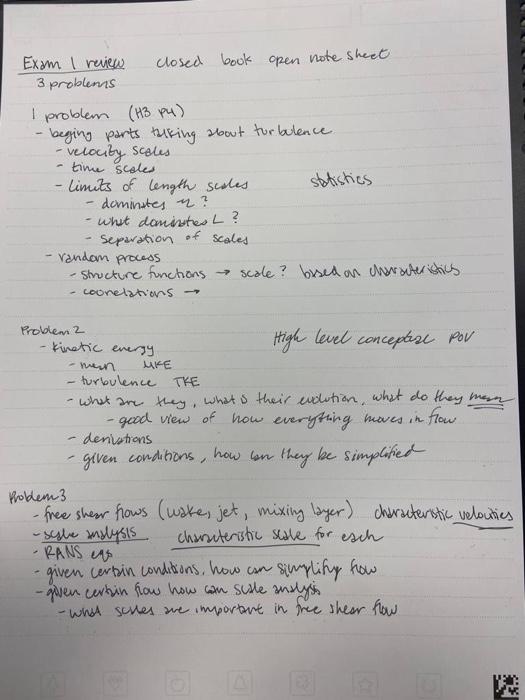 Exam 1 review closed book open note sheet
3 problems
1 problem (H3 P4)
- beging parts talking about turbulence
- velocity scales
- time scales
- limits of length scales statistics
- dominates η?
- what dominates L?
- separation of scales
- random process
- structure functions → scale? based on characteristics
- coorelations →
Problem 2 High level conceptual POV
- kinetic energy
- mean MKE
- turbulence TKE
- what are they, what is their evolution, what do they mean
- good view of how everything moves in flow
- derivations
- given conditions, how can they be simplified
Problem 3
- free shear flows (wake, jet, mixing layer) characteristic velocities
- scale analysis characteristic scale for each
- RANS eqs
- given certain conditions, how can simplify flow
- given certain flow how can scale analysis
- what scales are important in free shear flow